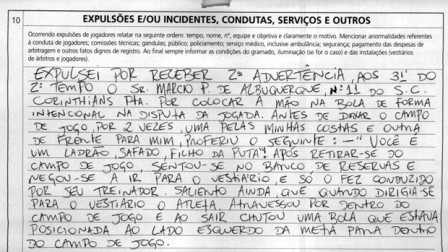 10
EXPULSÕES E/OU INCIDENTES, CONDUTAS, SERVIÇOS E OUTROS
Ocorrendo expulsões de jogadores relatar na seguinte ordem: tempo, nome, nº, equipe e objetiva e claramente o motivo. Mencionar anormalidades referentes
à conduta de jogadores; comissões técnicas; gandulas; público; policiamento; serviço médico, inclusive ambulância; segurança; pagamento das despesas de
arbitragem e outros fatos dignos de registro. Ao final sempre informar as condições do gramado, iluminação (se for o caso) e das instalações (vestiários
de árbitros e jogadores).
EXPULSEI POR RECEBER 2ª ADVERTÊNCIA, AOS 31' DO
2º TEMPO O SR. MARCIO P. DE ALBUQUERQUE, Nº 11 DO S.C.
CORINTHIANS PTA. POR COLOCAR A MÃO NA BOLA DE FORMA
INTENCIONAL NA DISPUTA DA JOGADA. ANTES DE DEIXAR O CAMPO
DE JOGO, POR 2 VEZES, UMA PELAS MINHAS COSTAS E OUTRA
DE FRENTE PARA MIM, PROFERIU O SEGUINTE: - "VOCÊ É
UM LADRÃO, SAFADO, FILHO DA PUTA". APÓS RETIRAR-SE DO
CAMPO DE JOGO, SENTOU-SE NO BANCO DE RESERVAS E
NEGOU-SE A IR PARA O VESTIÁRIO E SÓ O FEZ CONDUZIDO
POR SEU TREINADOR. SALIENTO AINDA, QUE QUANDO DIRIGIA-SE
PARA O VESTIÁRIO O ATLETA ATRAVESSOU POR DENTRO DO
CAMPO DE JOGO E AO SAIR CHUTOU UMA BOLA QUE ESTAVA
POSICIONADA AO LADO ESQUERDO DA META PARA DENTRO
DO CAMPO DE JOGO.